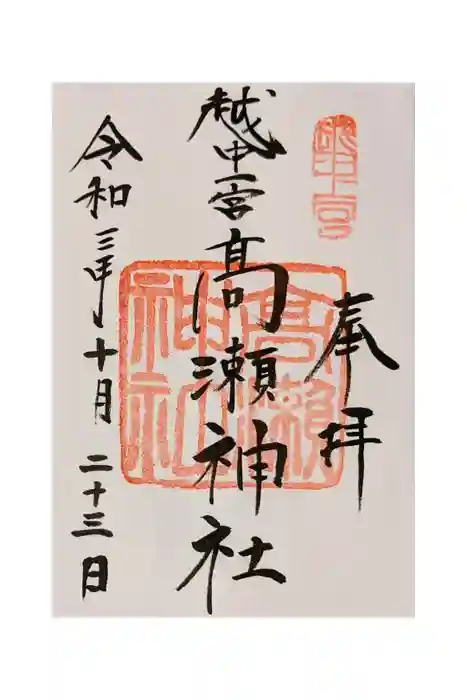 奉拝
越中一宮高瀬神社
高瀬神社
令和三年十月二十三日